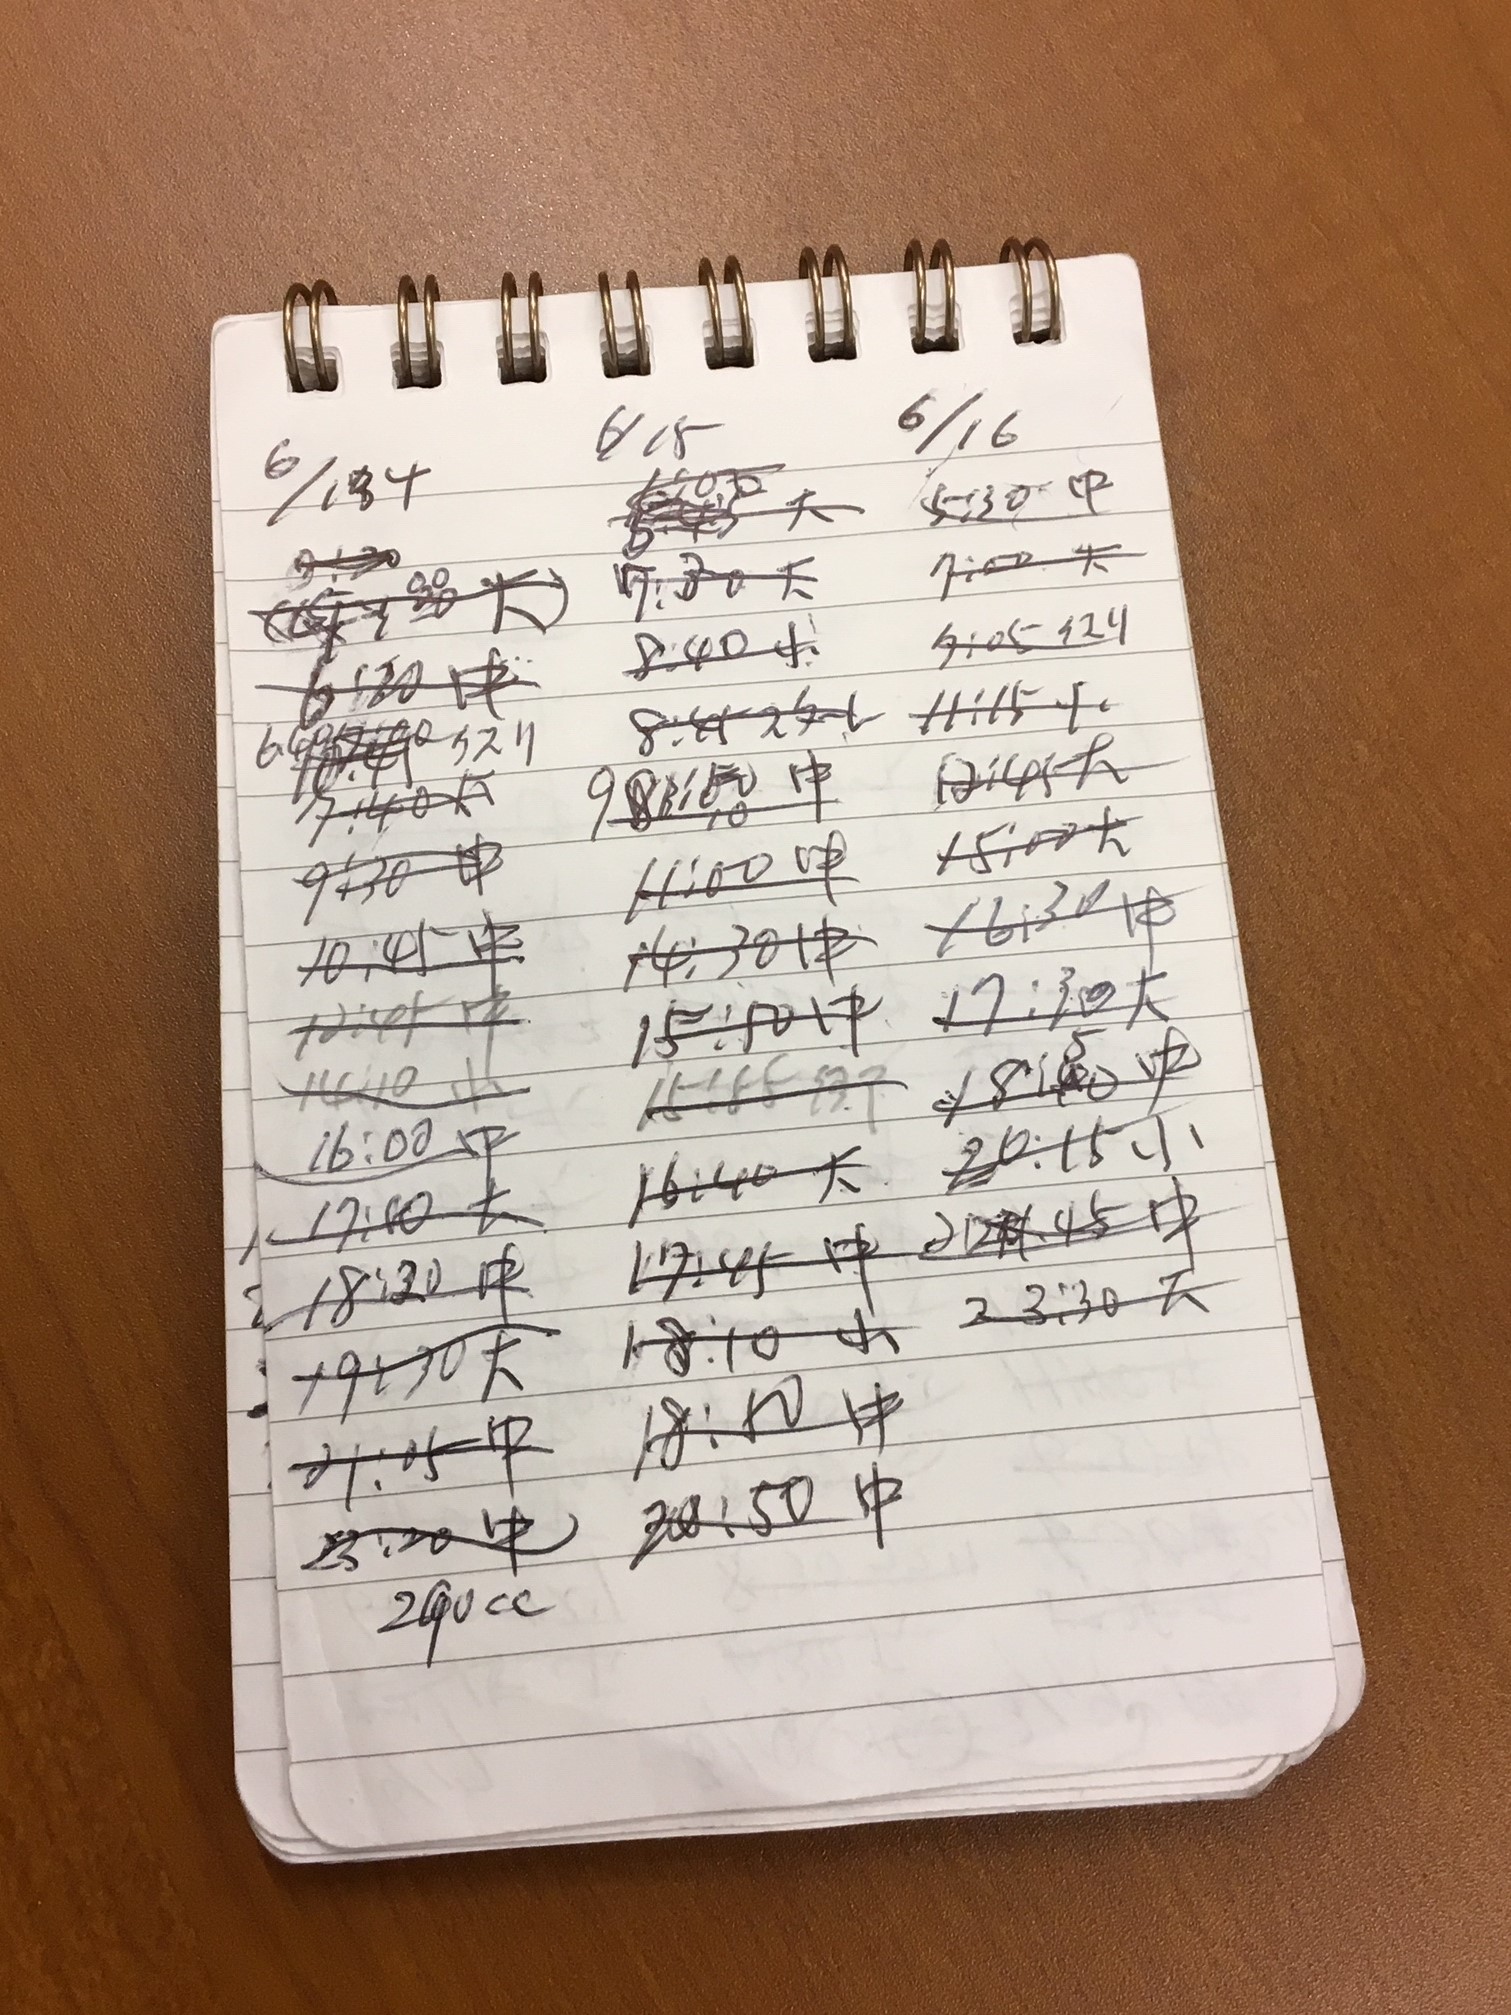 6/14
6:30 中
クスリ
7:40 大
9:30 中
10:45 中
12:45 中
14:10 小
16:00 中
17:10 大
18:30 中
19:30 大
21:05 中
23:20 中
cc
6/15
大
7:30 大
8:40 小
8:45 クスリ
9:10 中
11:00 中
14:30 中
15:50 中
15:55
16:40 大
17:45 中
18:10 小
18:50 中
20:50 中
6/16
5:30 中
7:00 大
7:05 クスリ
11:15 小
12:45 大
15:00 大
16:30 中
17:30 大
18:50 中
20:15 小
21:45 中
23:30 大